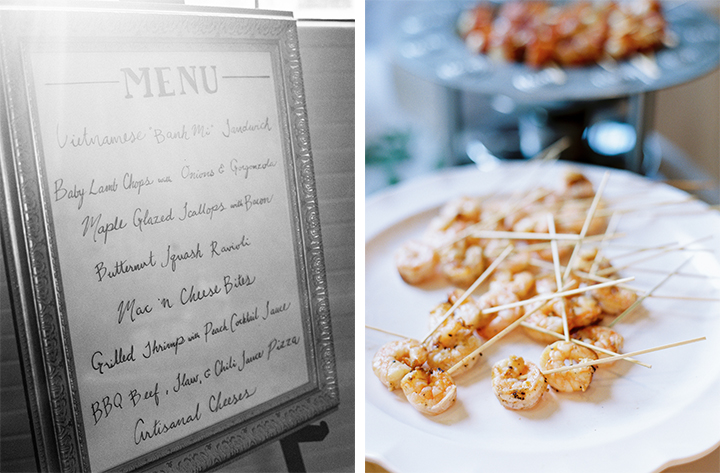 MENU
Vietnamese "Banh Mi" Sandwich
Baby Lamb Chops with Onions & Gorgonzola
Maple Glazed Scallops with Bacon
Butternut Squash Ravioli
Mac 'n Cheese Bites
Grilled Shrimp with Peach Cocktail Sauce
BBQ Beef, Slaw, & Chili Sauce Pizza
Artisanal Cheeses